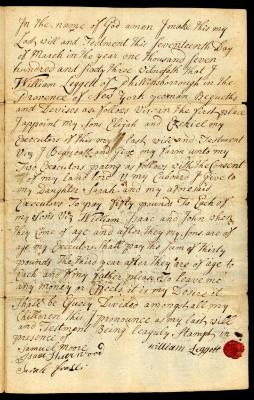 In the name of God amen I make this my
Last will and Testment this Seventeenth Day
of March in the year one Thousand seven
hundred and sixty three Witnesseth that I
William Leggett of Philipsborough in the
Provence of New York yeoman Bequeths
and Devises as follows Viz in the first place
I appoint my sons Elijah and Ezekiel my
Executors of this my Last will and Testment
Viz I Bequeath and give my Farm unto my
Two Executors paing as follows with the Consent
of my Land Lord my Cuboard I give to
my Daughter Sarah and my aforesaid
Executors To pay fifty pounds To Each of
my sons Viz William Isaac and John when
they Come of age and after they my sons are of
age my Executors shall pay the sum of thirty
pounds The Third year after they are of age to
Each and if my father please To leave me
any money or Effects it is my Desire it
shall be Equely Divided amongst all my
Children this I pronounce as my last will
and Testment Being legualy stampt in
presence of
Samuel Moore
Isaac Sherwood
Sarah
William Leggett